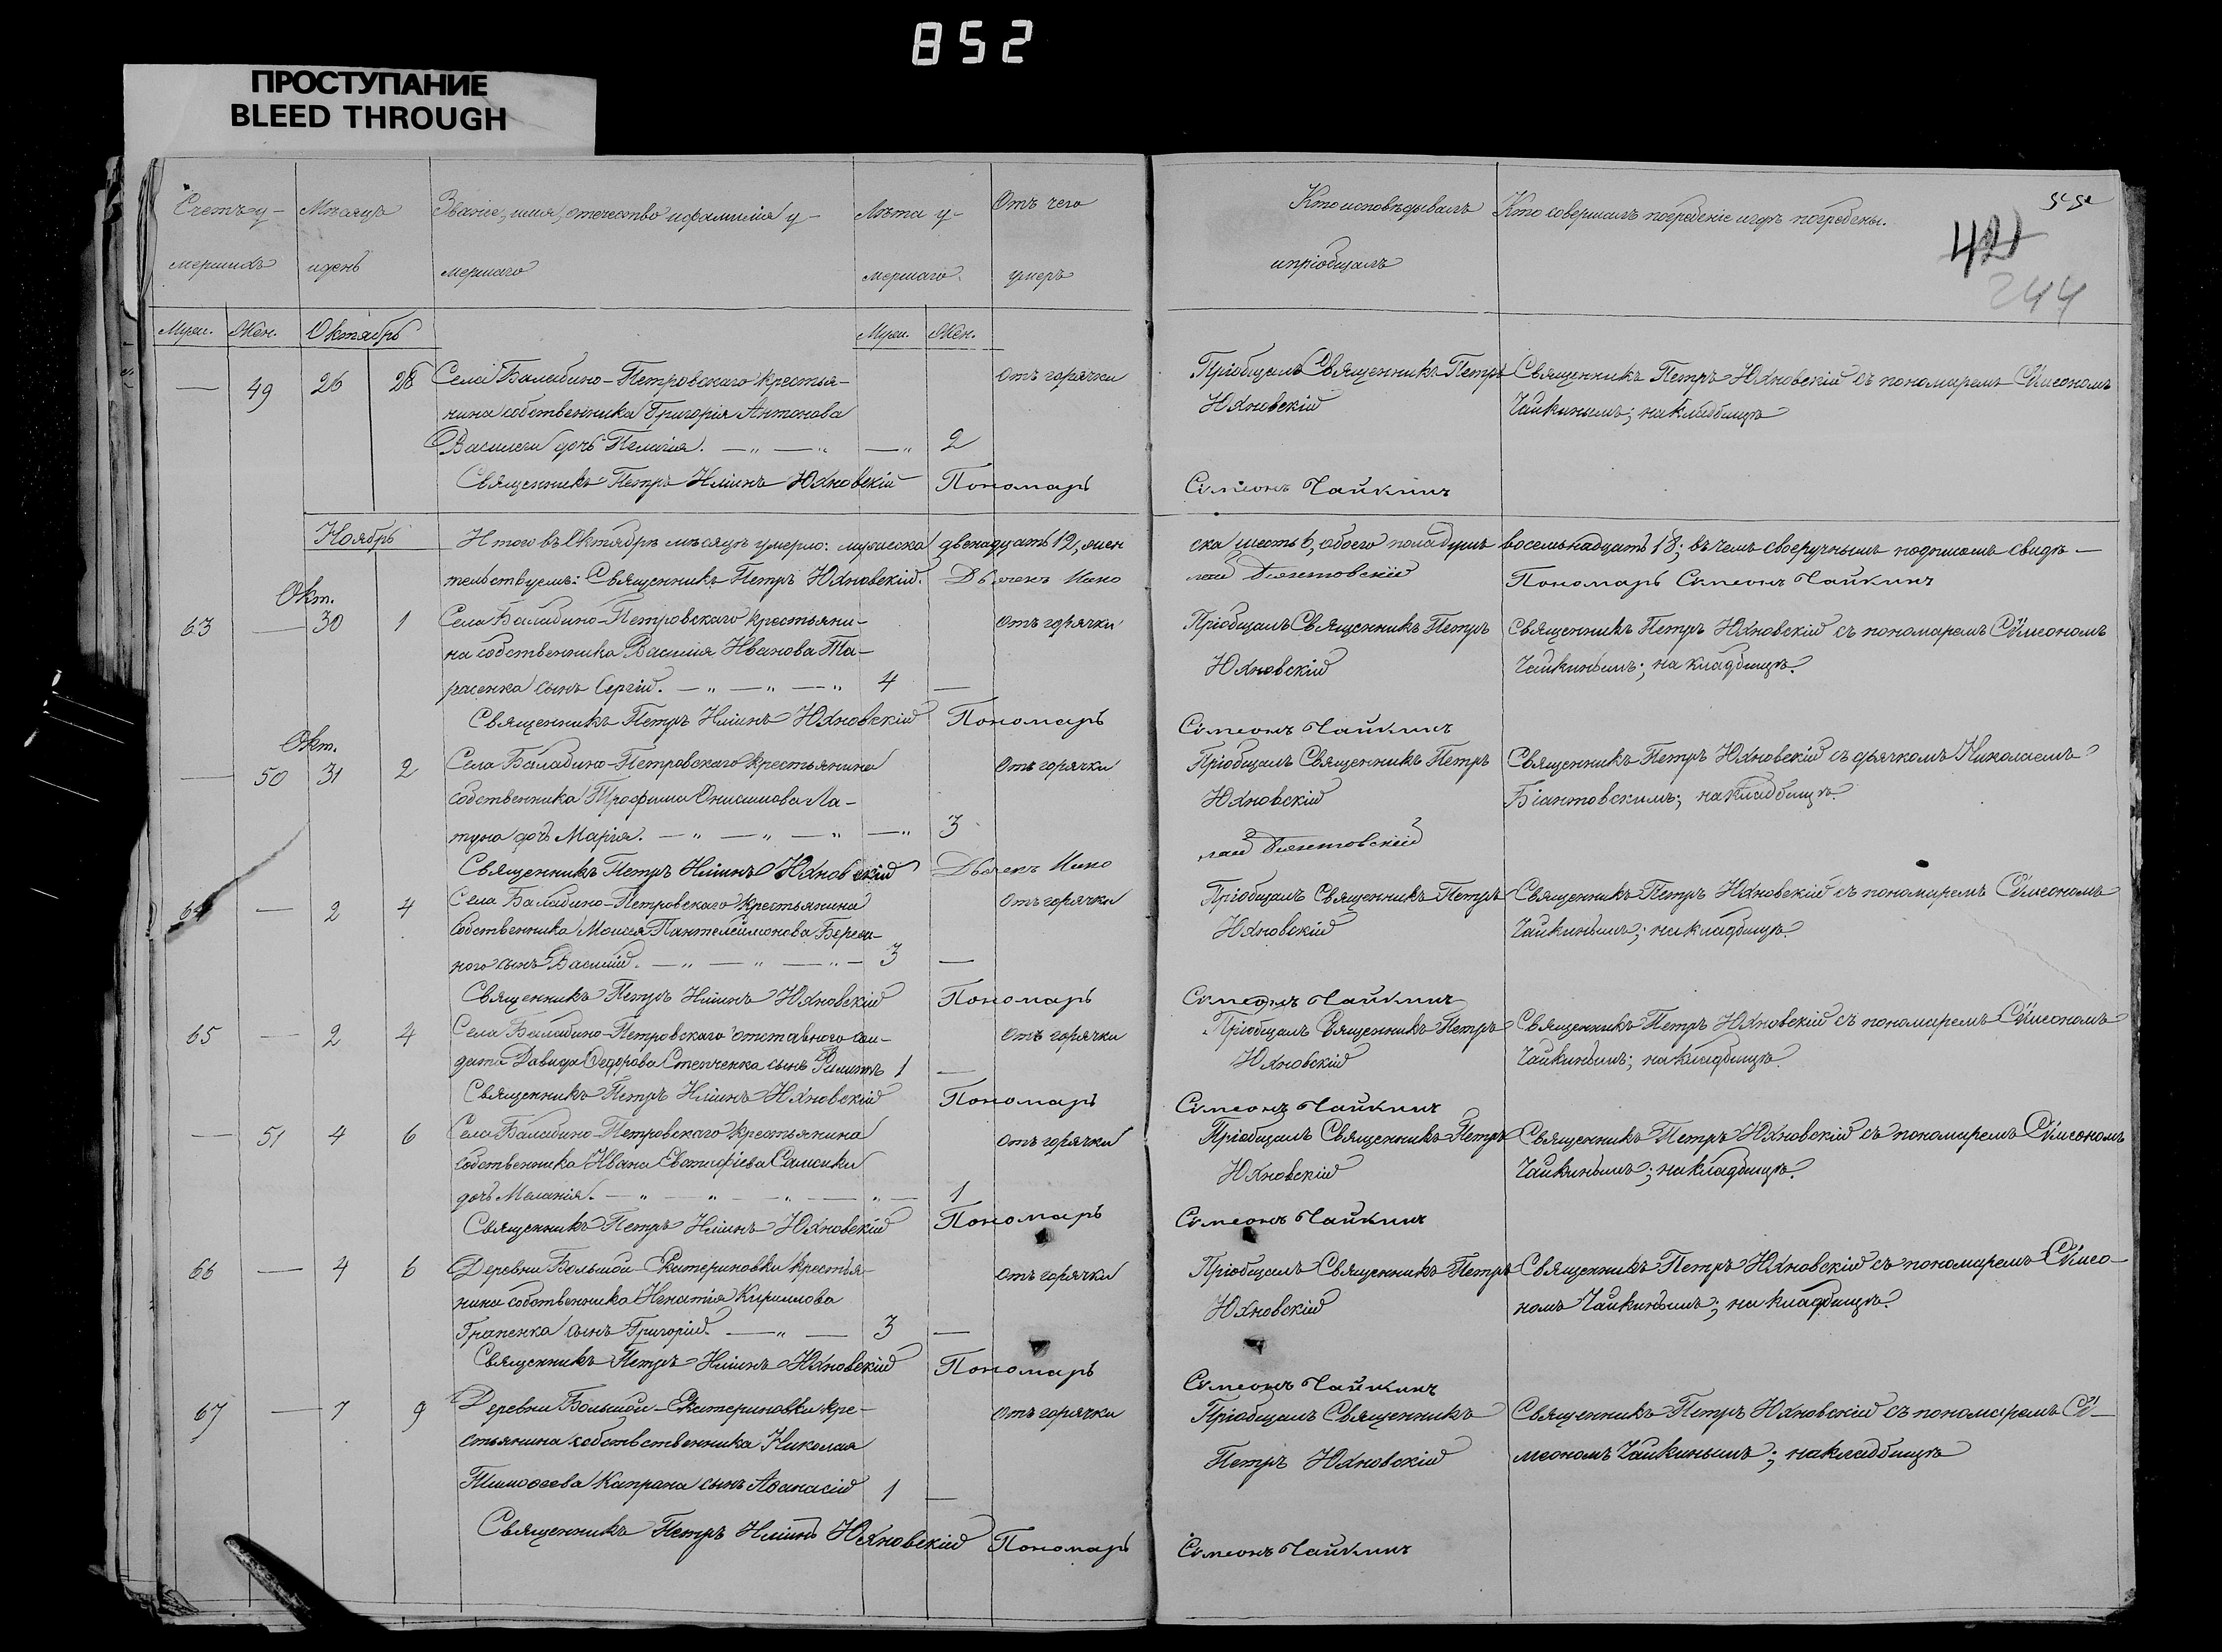 852
ПРОСТУПАНИЕ
BLEED THROUGH
Счетъ у- Мѣсяцъ Званіе, имя, отечество и фамилія у- Лѣта у- Отъ чего Кто исповѣдывалъ Кто совершалъ погребеніе и гдѣ погребены.
42
мершихъ и день мершаго мершаго умеръ и пріобщалъ
244
Муж. Жен. Октябрь Муж. Жен.
— 49 26 28 Села Балабино-Петровскаго крестья- Отъ горячки Пріобщалъ Священникъ Петръ Священникъ Петръ Юхновскій съ пономаремъ Симеономъ
нина собственника Григорія Антонова Юхновскій Чайкинымъ; на кладбищѣ
дочь Пелагія. — „ — „ — „ 2
Священникъ Петръ Юхновскій Пономарь Симеонъ Чайкинъ
Ноябрь Итого въ Октябрѣ мѣсяцѣ умерло: мужеска двенадцать 12, жен ска шесть 6, обоего пола душъ восемьнадцать 18; въ чемъ своеручнымъ подписомъ свидѣ-
тельствуемъ: Священникъ Петръ Юхновскій. Дьячекъ Нико лай Біантовскій Пономарь Симеонъ Чайкинъ
Окт.
63 — 30 1 Села Балабино-Петровскаго крестьяни- Отъ горячки Пріобщалъ Священникъ Петръ Священникъ Петръ Юхновскій съ пономаремъ Симеономъ
на собственника Василія Иванова Та- Юхновскій Чайкинымъ; на кладбищѣ.
расенка сынъ Сергій. — „ — „ — „ 4 —
Священникъ Петръ Юхновскій Пономарь Симеонъ Чайкинъ
Окт.
— 50 31 2 Села Балабино-Петровскаго крестьянина Отъ горячки Пріобщалъ Священникъ Петръ Священникъ Петръ Юхновскій съ дьячкомъ Николаемъ
собственника Трофима Онисимова Ла- Юхновскій Біантовскимъ; на кладбищѣ.
туна дочь Марія. — „ — „ — „ — „ 3
Священникъ Петръ Юхновскій Дьячекъ Нико лай Біантовскій
64 — 2 4 Села Балабино-Петровскаго крестьянина Отъ горячки Пріобщалъ Священникъ Петръ Священникъ Петръ Юхновскій съ пономаремъ Симеономъ
собственника Моисея Пантелеймонова Юхновскій Чайкинымъ; на кладбищѣ.
ного сынъ Василій. — „ — „ — „ — 3 —
Священникъ Петръ Юхновскій Пономарь Симеонъ Чайкинъ
65 — 2 4 Села Балабино-Петровскаго отставного сол- Отъ горячки Пріобщалъ Священникъ Петръ Священникъ Петръ Юхновскій съ пономаремъ Симеономъ
дата Давида Федорова Степченка сынъ Филиппъ 1 — Юхновскій Чайкинымъ; на кладбищѣ.
Священникъ Петръ Юхновскій Пономарь Симеонъ Чайкинъ
— 51 4 6 Села Балабино-Петровскаго крестьянина Отъ горячки Пріобщалъ Священникъ Петръ Священникъ Петръ Юхновскій съ пономаремъ Симеономъ
собственника Ивана Евстафіева Юхновскій Чайкинымъ; на кладбищѣ.
дочь Меланія. — „ — „ — „ — „ — 1
Священникъ Петръ Юхновскій Пономарь Симеонъ Чайкинъ
66 — 4 6 Деревни Большой-Екатериновки крестья- Отъ горячки Пріобщалъ Священникъ Петръ Священникъ Петръ Юхновскій съ пономаремъ Симео-
нина собственника Игнатія Кириллова Юхновскій номъ Чайкинымъ; на кладбищѣ.
Гапенка сынъ Григорій. — „ — 3 —
Священникъ Петръ Юхновскій Пономарь Симеонъ Чайкинъ
67 — 7 9 Деревни Большой-Екатериновки кре- Отъ горячки Пріобщалъ Священникъ Священникъ Петръ Юхновскій съ пономаремъ Си-
стьянина собственника Николая Петръ Юхновскій меономъ Чайкинымъ; на кладбищѣ
Тимоѳеева Капрана сынъ Аѳанасій 1 —
Священникъ Петръ Юхновскій Пономарь Симеонъ Чайкинъ